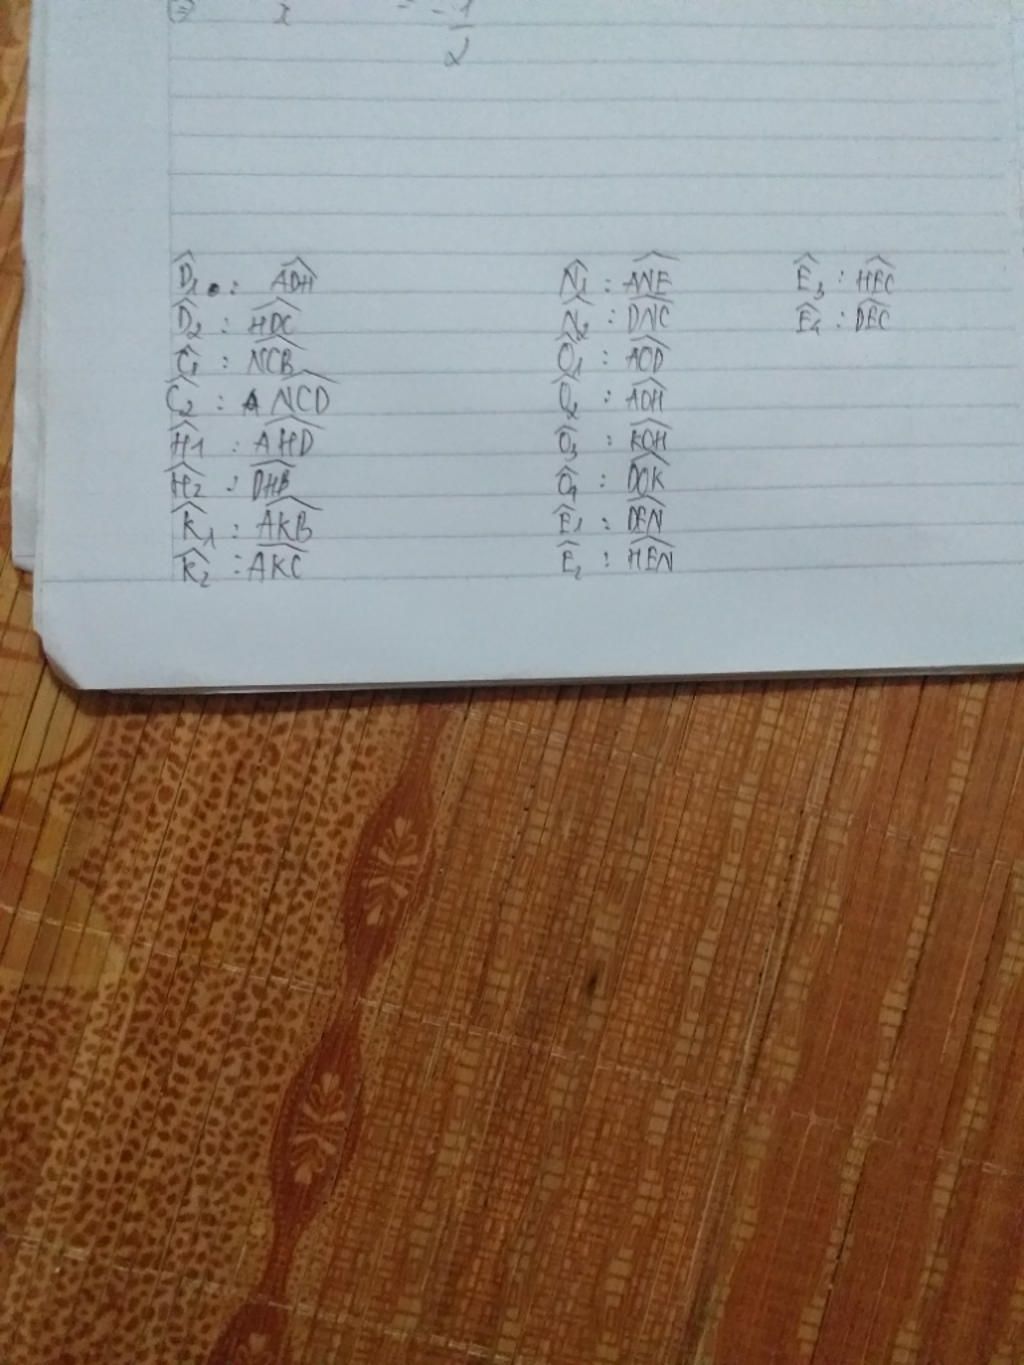 = -1/2
D̂1 : ADH
D̂2 : HDC
Ĉ1 : NCB
Ĉ2 : NCD
Ĥ1 : AHD
Ĥ2 : DHB
K̂1 : AKB
K̂2 : AKC
N̂1 : ANE
N̂2 : DNC
Ô1 : AOD
Ô2 : AOH
Ô3 : KOH
Ô4 : DOK
Ê1 : DEN
Ê2 : HEN
Ê3 : HEC
Ê4 : DEC